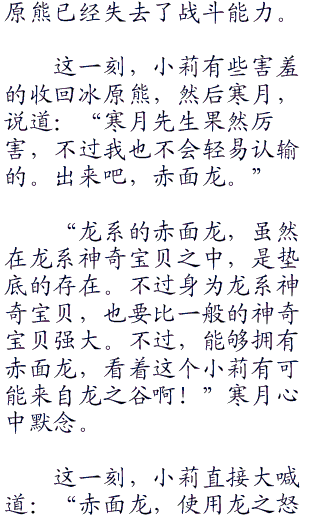 原熊已经失去了战斗能力。
这一刻，小莉有些害羞
的收回冰原熊，然后寒月，
说道：“寒月先生果然厉
害，不过我也不会轻易认输
的。出来吧，赤面龙。”
“龙系的赤面龙，虽然
在龙系神奇宝贝之中，是垫
底的存在。不过身为龙系神
奇宝贝，也要比一般的神奇
宝贝强大。不过，能够拥有
赤面龙，看着这个小莉有可
能来自龙之谷啊！”寒月心
中默念。
这一刻，小莉直接大喊
道：“赤面龙，使用龙之怒